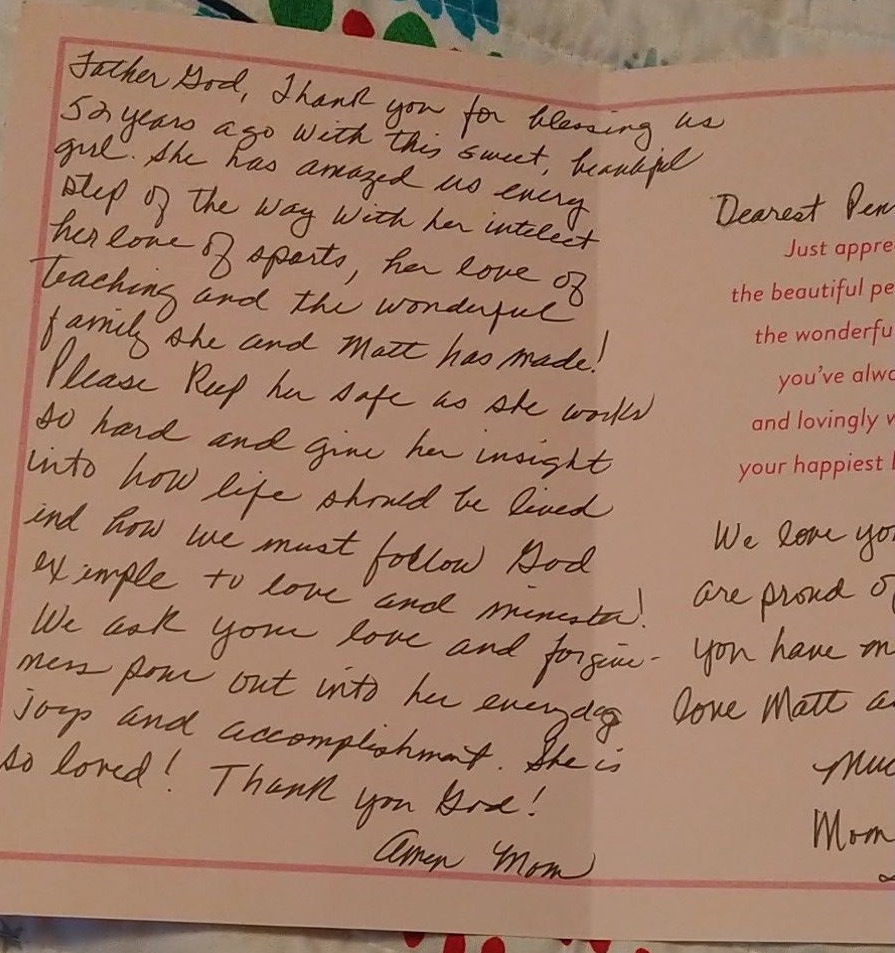 Father God, Thank you for blessing us
52 years ago with this sweet, beautiful
girl. She has amazed us every
step of the way with her intelect
her love of sports, her love of
teaching and the wonderful
family she and Matt has made!
Please keep her safe as she works
so hard and give her insight
into how life should be lived
and how we must follow God
example to love and minister!
We ask your love and forgive-
ness pour out into her everyday
joys and accomplishment. She is
so loved! Thank you God!
Amen Mom
Dearest Pen
Just appre
the beautiful pe
the wonderfu
you've alwa
and lovingly w
your happiest
We love you
are proud of
you have m
love Matt a
Muc
Mom